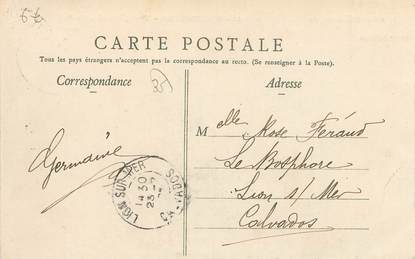 CARTE POSTALE
Tous les pays étrangers n'acceptent pas la correspondance au recto. (Se renseigner à la Poste).
Correspondance
35
Adresse
Melle Rose Féraud
Le Bosphore
Lion s/ Mer
Calvados
Germaine
LION SUR MER
14 30
23